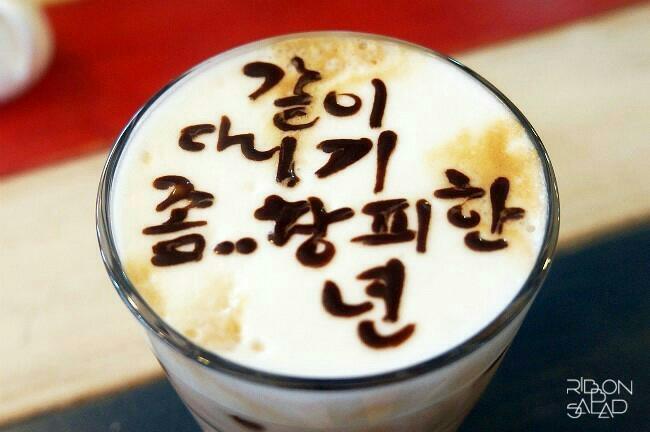 같이
다니기
좀..창피한
년
RIBBON
SALAD